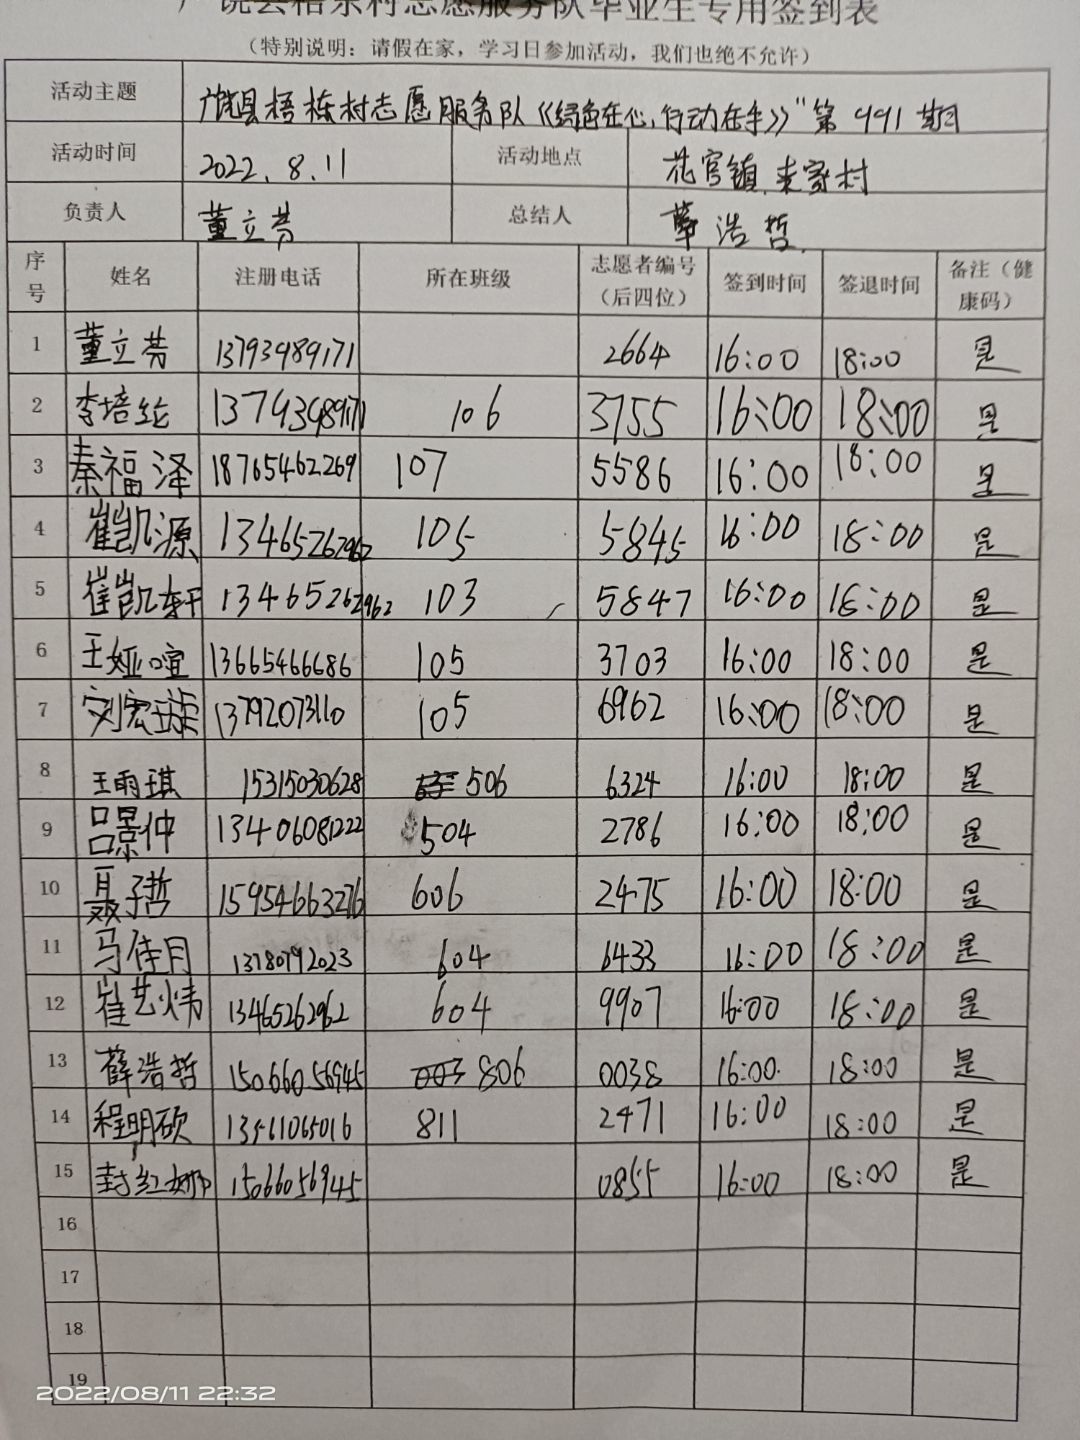 广饶县梧桐村志愿服务队毕业生专用签到表
（特别说明：请假在家，学习日参加活动，我们也绝不允许）
活动主题 广饶县梧桐村志愿服务队《绿色在心,行动在手》"第991期
活动时间 2022.8.11 活动地点 花官镇.李家村
负责人 董立芳 总结人 薛浩哲
序号 姓名 注册电话 所在班级 志愿者编号（后四位） 签到时间 签退时间 备注（健康码）
1 董立芳 13793989171 2664 16:00 18:00 是
2 李培纶 13793989171 106 3755 16:00 18:00 是
3 秦福泽 18765462269 107 5586 16:00 18:00 是
4 崔凯源 13465262962 105 5845 16:00 18:00 是
5 崔凯轩 13465262962 103 5847 16:00 18:00 是
6 王娅喧 13665466686 105 3703 16:00 18:00 是
7 刘宏璇 13792073110 105 6962 16:00 18:00 是
8 王雨琪 15315030628 506 6324 16:00 18:00 是
9 吕景仲 13406081222 504 2786 16:00 18:00 是
10 聂子哲 15954663276 606 2475 16:00 18:00 是
11 马佳月 13780792023 604 6433 16:00 18:00 是
12 崔艺炜 13465262962 604 9907 16:00 18:00 是
13 薛浩哲 15066056945 003 806 0038 16:00 18:00 是
14 程明硕 13561065016 811 2471 16:00 18:00 是
15 封红娜 15066056945 0855 16:00 18:00 是
16
17
18
19
2022/08/11 22:32